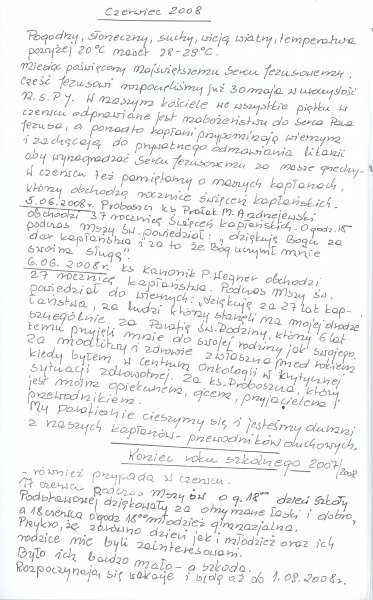 Czerwiec 2008
Pogodny, słoneczny, suchy, wieją wiatry, temperatura
powyżej 20°C nawet 28-29°C.
Miesiąc poświęcony Najświętszemu Sercu Jezusowemu.
Cześć Jezusowi rozpoczęliśmy już 30 maja w uroczystość
N.S.P.J. W naszym kościele we wszystkie piątki w
czerwcu odprawiane jest nabożeństwo do Serca Pana
Jezusa, a ponadto kapłani przypominają wiernym
i zachęcają do prywatnego odmawiania litanii
aby wynagradzać Sercu Jezusowemu za nasze grzechy.
W czerwcu też pamiętamy o naszych kapłanach,
którzy obchodzą rocznice święceń kapłańskich.
5.06.2008r. Proboszcz ks Prałat M. Andrzejewski
obchodzi 37 rocznicę święceń kapłańskich. O godz. 18°°
podczas Mszy Św. powiedział: "dziękuję Bogu za
dar kapłaństwa i za to że Bóg uczynił mnie
swoim sługą.
6.06.2008r. ks Kanonik P. Wegner obchodzi
27 rocznicę kapłaństwa. Podczas Mszy Św.
powiedział do wiernych: "dziękuję za 27 lat kap-
łaństwa, za ludzi którzy stanęli na mojej drodze
szczególnie za Parafię Św. Rodziny, którzy 6 lat
temu przyjęli mnie do swojej rodziny jak swojego.
Za modlitwy i zdrowie zwłaszcza przed rokiem
kiedy byłem w Centrum Onkologii w krytycznej
sytuacji zdrowotnej. Za ks. Proboszcza, który
jest moim opiekunem, ojcem, przyjacielem i
przewodnikiem.
My parafianie cieszymy się i jesteśmy dumni
z naszych kapłanów - przewodników duchowych.
Koniec roku szkolnego 2007/2008
- również przypada w czerwcu.
17 czerwca podczas Mszy Św o g. 18°° dzieci Szkoły
Podstawowej dziękowały za otrzymane łaski i dobro,
a 18 czerwca o godz 18°° młodzież gimnazjalna.
Przykro, że zarówno dzieci jak i młodzież oraz ich
rodzice nie byli zainteresowani.
Było ich bardzo mało - a szkoda.
Rozpoczynają się wakacje i będą aż do 1.09.2008r.